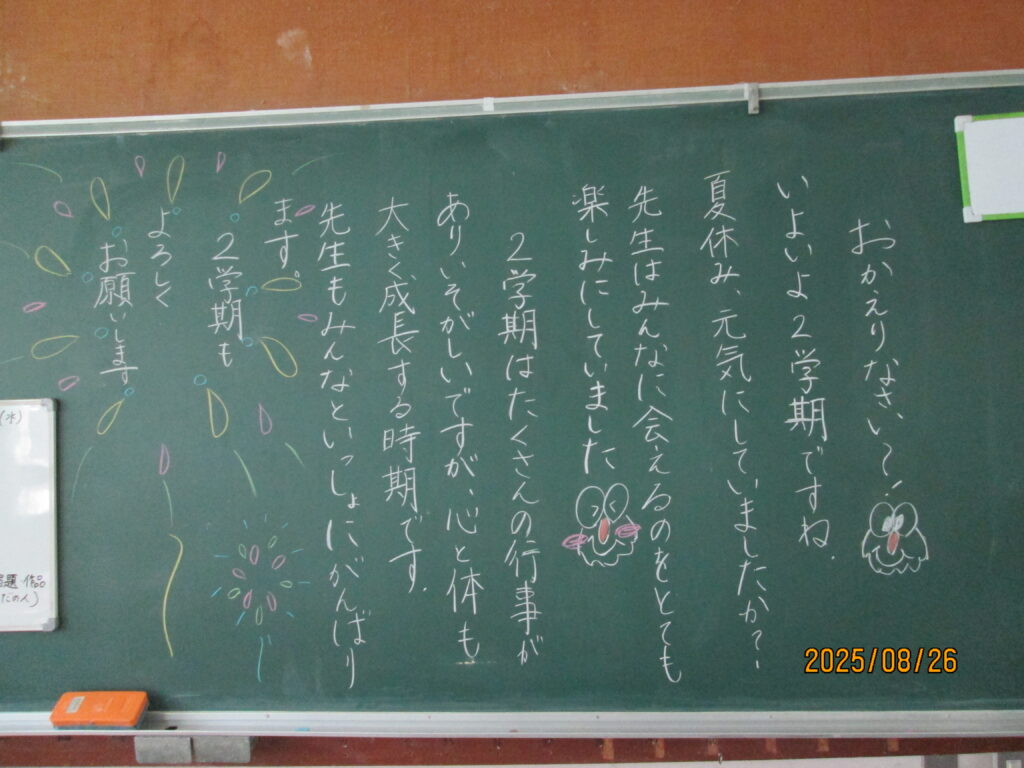 おかえりなさい〜!
いよいよ2学期ですね.
夏休み、元気にしていましたか?
先生はみんなに会えるのをとても
楽しみにしていました
2学期はたくさんの行事が
ありいそがしいですが、心と体も
大きく成長する時期です.
先生もみんなといっしょにがんばり
ます。
2学期も
よろしく
お願いします
(水)
題 作品
2025/08/26